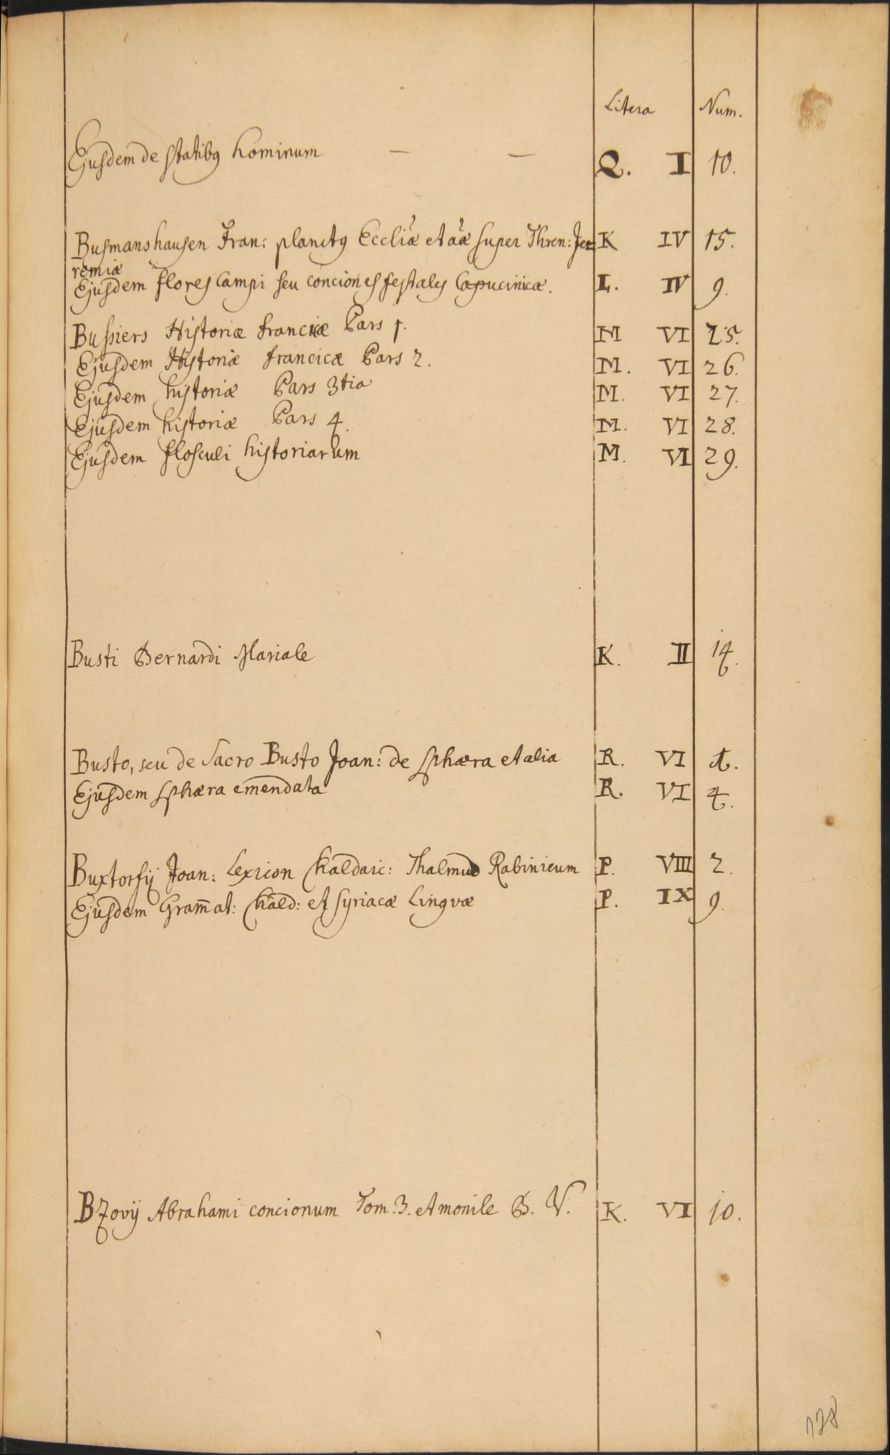 Litera Num.
Ejusdem de statibꝰ hominum — — Q. I 10.
Busmanshausen Fran: planctꝰ Eccliæ et aĩæ super Thren: Je= K IV 15.
remiæ
Ejusdem flores Campi seu conciones festales Capucinicæ. L. IV 9.
Bussiers Historiæ francicæ Pars 1. M VI 25.
Ejusdem Historiæ francicæ Pars 2. M. VI 26.
Ejusdem historiæ Pars 3tia M. VI 27.
Ejusdem historiæ Pars 4. M. VI 28.
Ejusdem flosculi historiarum M. VI 29.
Busti Bernardi Mariale K. II 14.
Busto, seu de Sacro Busto Joan: de Sphæra et alia R. VI 1.
Ejusdem Sphæra emendata R. VI 4.
Buxtorfij Joan: Lexicon Chaldaic: Thalmud Rabinicum P. VIII 2.
Ejusdem Gram̃at: Chald: et Syriacæ Lingvæ P. IX 9.
Bzovij Abrahami concionum Tom. 3. et monile B. V. K. VI 10.
128